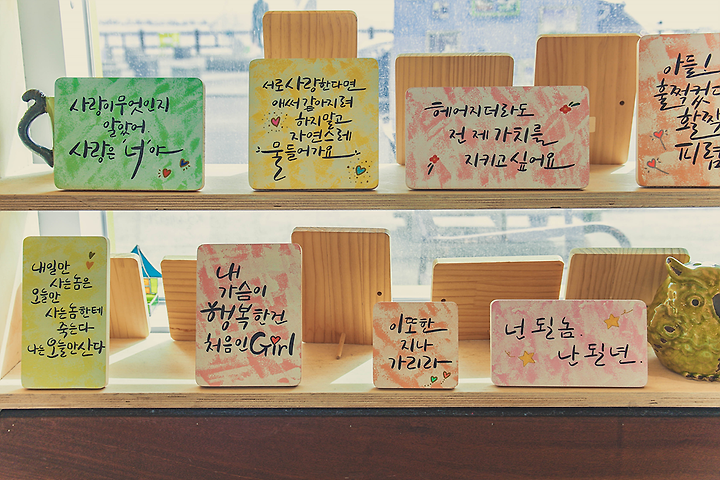 사랑이 무엇인지
알았어.
사랑은 "너"야
서로 사랑한다면
애써 같아지려
하지말고
자연스레
물들어가요
헤어지더라도
전 제 가치를
지키고 싶어요
아들!
훌쩍컸다
활짝
피렴
내일만
사는놈은
오늘만
사는놈한테
죽는다
나는 오늘만산다
내
가슴이
행복한건
처음인Girl
이 또한
지나
가리라
넌 될 놈.
난 될 년.